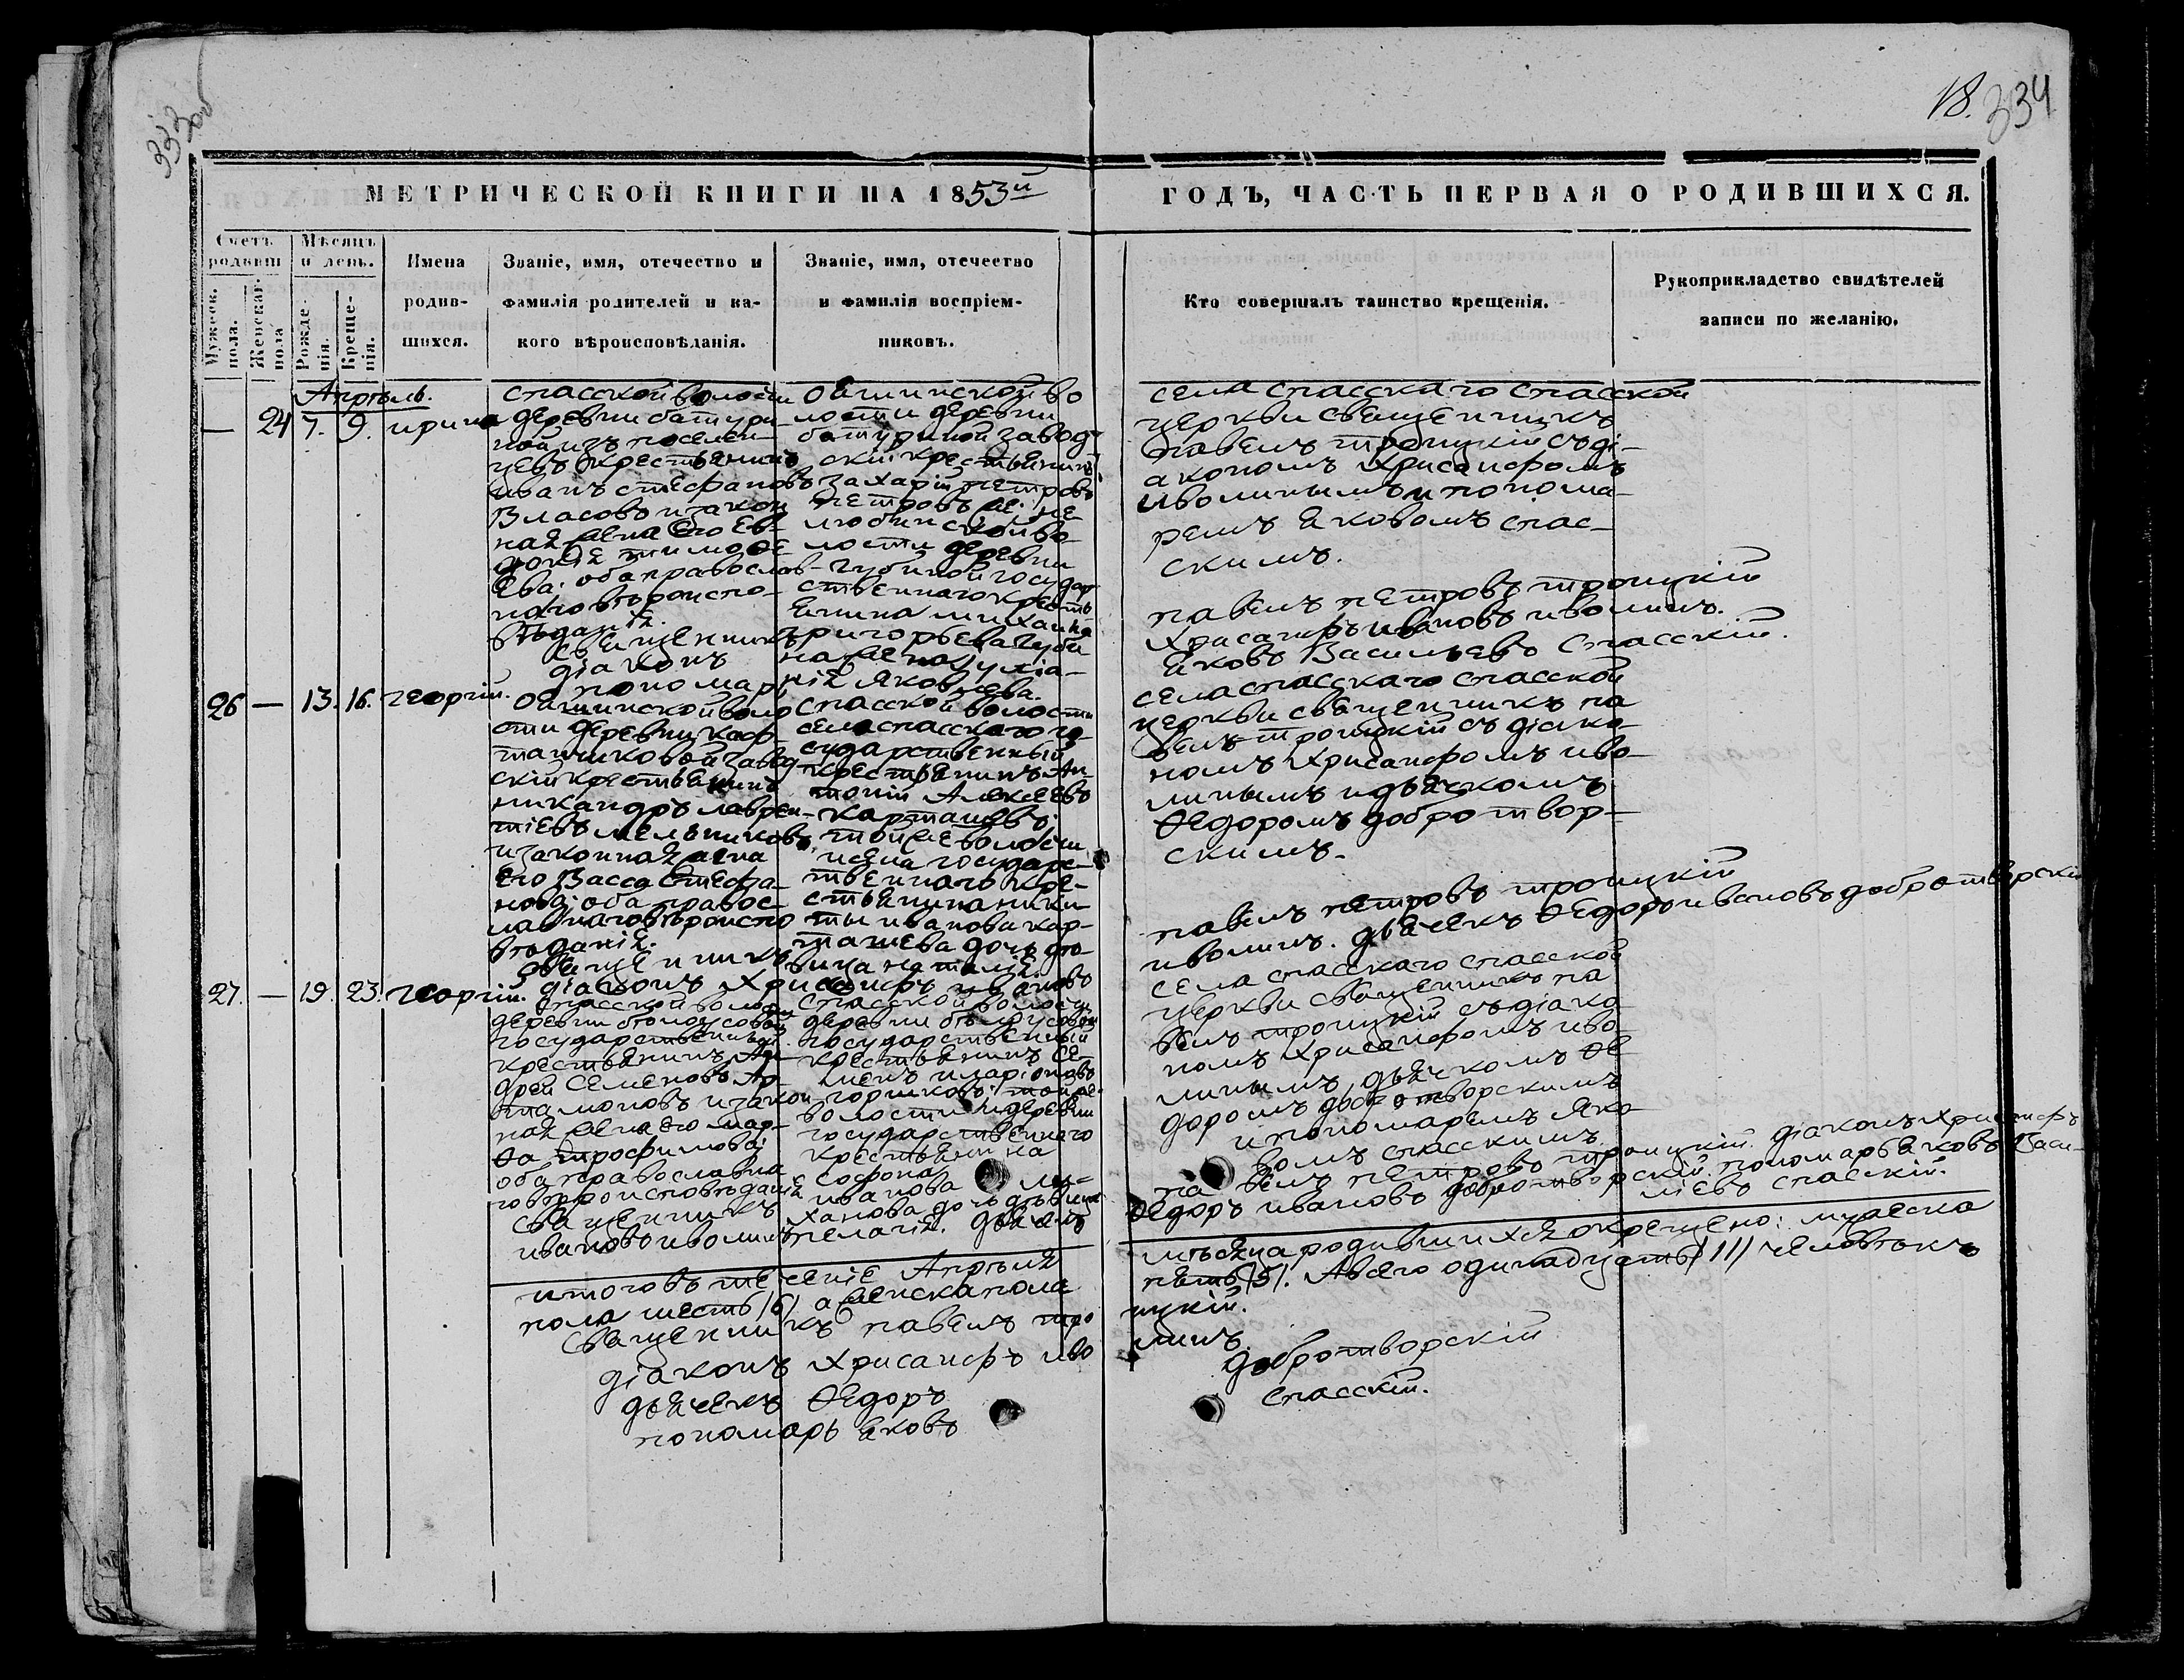 333 об
18. 334
МЕТРИЧЕСКОЙ КНИГИ НА 1853й
ГОДЪ, ЧАСТЬ ПЕРВАЯ О РОДИВШИХСЯ.
Счетъ родивш
Мужеск. пола.
Женскаг. пола
Мѣсяцъ и день.
Рожде-нія.
Креще-нія.
Имена
родив-
шихся.
Званіе, имя, отечество и
фамилія родителей и ка-
кого вѣроисповѣданія.
Званіе, имя, отечество
и фамилія воспріем-
никовъ.
Кто совершалъ таинство крещенія.
Рукоприкладство свидѣтелей
записи по желанію.
Апрѣль.
— 24 7. 9. ирина
спасской волости
деревни батури-
ной изъ поселен-
цевъ крестьянинъ
иванъ стефановъ
Власовъ и закон
ная жена его Ев-
докія тимофе
ева. оба православ-
наго вѣроиспо-
вѣданія.
священникъ
діаконъ
пономарь
ояшинской во
лости деревни
батуриной завод-
скій крестьянинъ
захарій петровъ
петровъ же; не
любинской во-
лости деревни
губиной государ
ственнаго кресть
янина михаила
григорьева губи
на жена улiа-
нія яковлева.
села спасскаго спасской
церкви священникъ
павелъ троицкій съ ді-
акономъ Хрисанфомъ
иволинымъ и понома-
ремъ яковомъ спас-
скимъ.
павелъ петровъ троицкій
Хрисанфъ ивановъ иволинъ.
яковъ Васильевъ Спасскій.
26 — 13. 16. георгій.
Ояшинской воло
сти деревни каф-
танчиковой завод
скій крестьянинъ
никандръ лаврен-
тіевъ мельниковъ
и законная жена
его Васса Стефа-
нова; оба правос-
лавнаго вѣроиспо
вѣданія.
священникъ
діаконъ Хрисанфъ ивановъ
спасской волости
села спасскаго го-
сударственный
крестьянинъ Ан-
тоній Алексеевъ
карташевъ;
той же волости
и села государс-
твеннаго кре-
стьянина ники-
ты иванова кар-
ташева дочь дѣ-
вица наталія.
села спасскаго спасской
церкви священникъ па
велъ троицкій съ діако-
номъ Хрисанфомъ иво-
линымъ и дьячкомъ
Ѳедоромъ добротвор-
скимъ.
павелъ петровъ троицкій
иволинъ. дьячекъ Ѳедоръ ивановъ добротворскій
27. — 19. 23. георгій.
спасской волости
деревни бѣлоусовой
государственный
крестьянинъ Ан-
дрей Семеновъ Ар-
тамоновъ и закон
ная жена его мар-
ѳа трофимова;
оба православна
го вѣроисповѣданія
священникъ
ивановъ иволинъ
спасской волости
деревни бѣлоусовой
государственный
крестьянинъ се-
менъ иларіоновъ
горшковъ; той же
волости и деревни
государственнаго
крестьянина
Софона
иванова
ханова дочь дѣвица
пелагія. дьячекъ
села спасскаго спасской
церкви священникъ па
велъ троицкій съ діако-
номъ Хрисанфомъ иво-
линымъ, дьячкомъ Ѳе
доромъ добротворскимъ
и пономаремъ Яко
вомъ спасскимъ.
павелъ петровъ троицкій. діаконъ Хрисанфъ
Ѳедоръ ивановъ добротворскій. пономарь яковъ Васи-
ліевъ спасскій.
итого въ теченіе Апрѣля
мѣсяца родившихся окрещено: мужеска
пола шесть /6/ а женска пола
пять /5/. А всего одинадцать /11/ человѣкъ
Священникъ павелъ тро
ицкій.
діаконъ Хрисанфъ иво
линъ
дьячекъ Ѳедоръ
добротворскій
пономарь яковъ
спасскій.